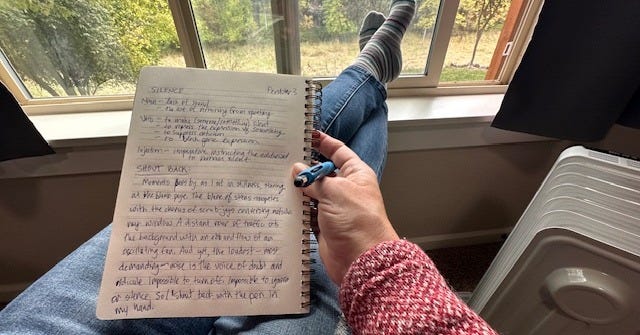 SILENCE October 3
Noun - lack of sound
- the act of refraining from speaking
Verb - to make (someone/something) silent
- to repress the expression of something
- to suppress criticism
- to lack expression
Injection - imperative instructing the addressed
to remain silent
SHOUT BACK
Moments pass by as I sit in stillness, staring
at the blank page. The blare of sirens competes
with the chorus of scrub jays conversing outside
my window. A distant roar of traffic sets
the background with an ebb and flow of an
oscillating fan. And yet, the loudest - most
demanding - noise is the voice of doubt and
ridicule impossible to turn off, impossible to ignore
or silence. So I shout back with the pen in
my hand.